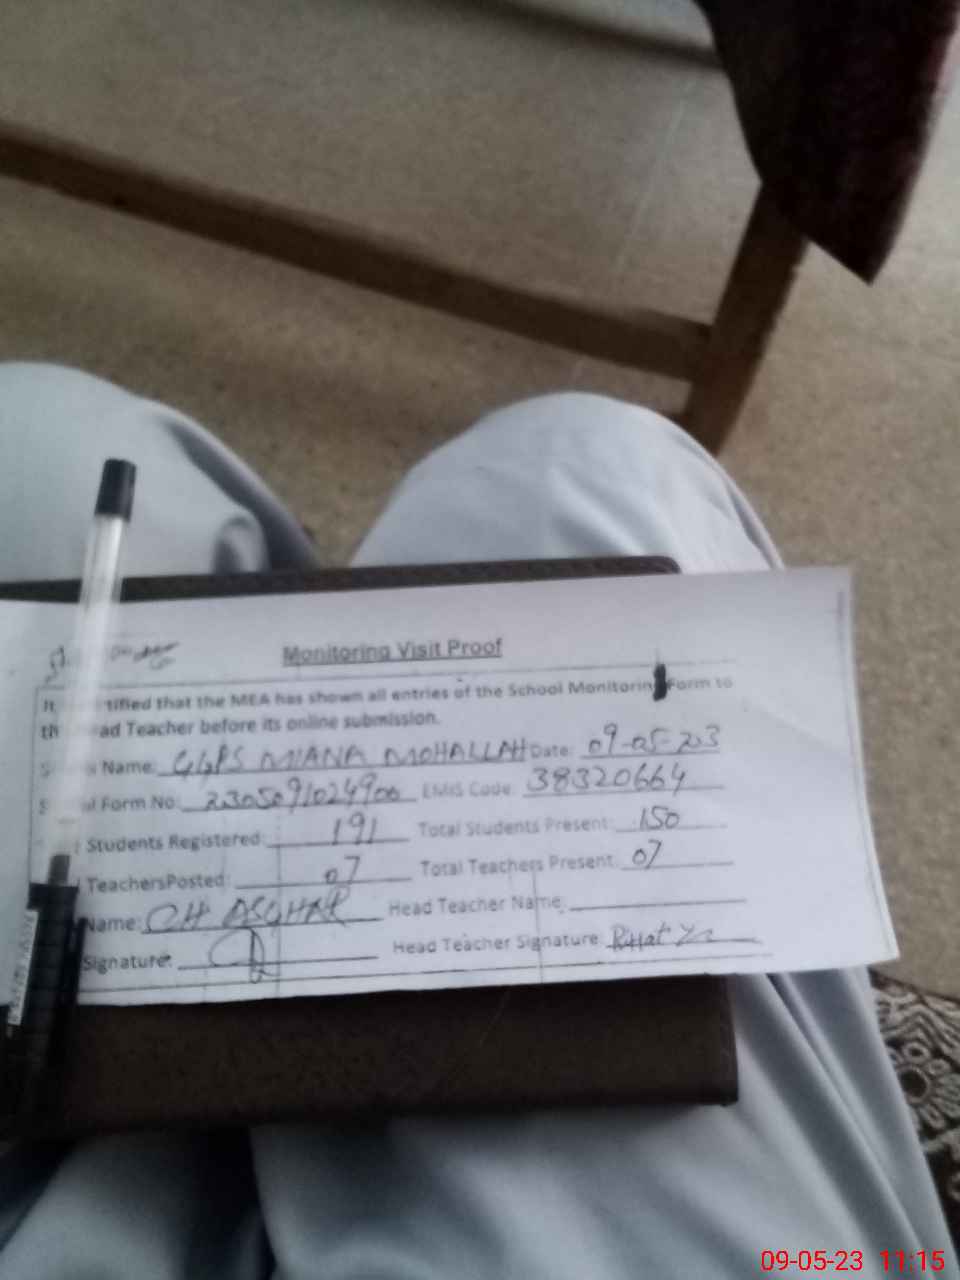 Monitoring Visit Proof
It tified that the MEA has shown all entries of the School Monitoring Form to
th ad Teacher before its online submission.
Name: GGPS MIANA MOHALLAH Date: 09-05-203
Form No: EMIS Code: 38320664
Students Registered: 191 Total Students Present: 150
TeachersPosted: 07 Total Teachers Present: 07
Name: CH ASGHAR Head Teacher Name:
Signature: Head Teacher Signature:
09-05-23 11:15